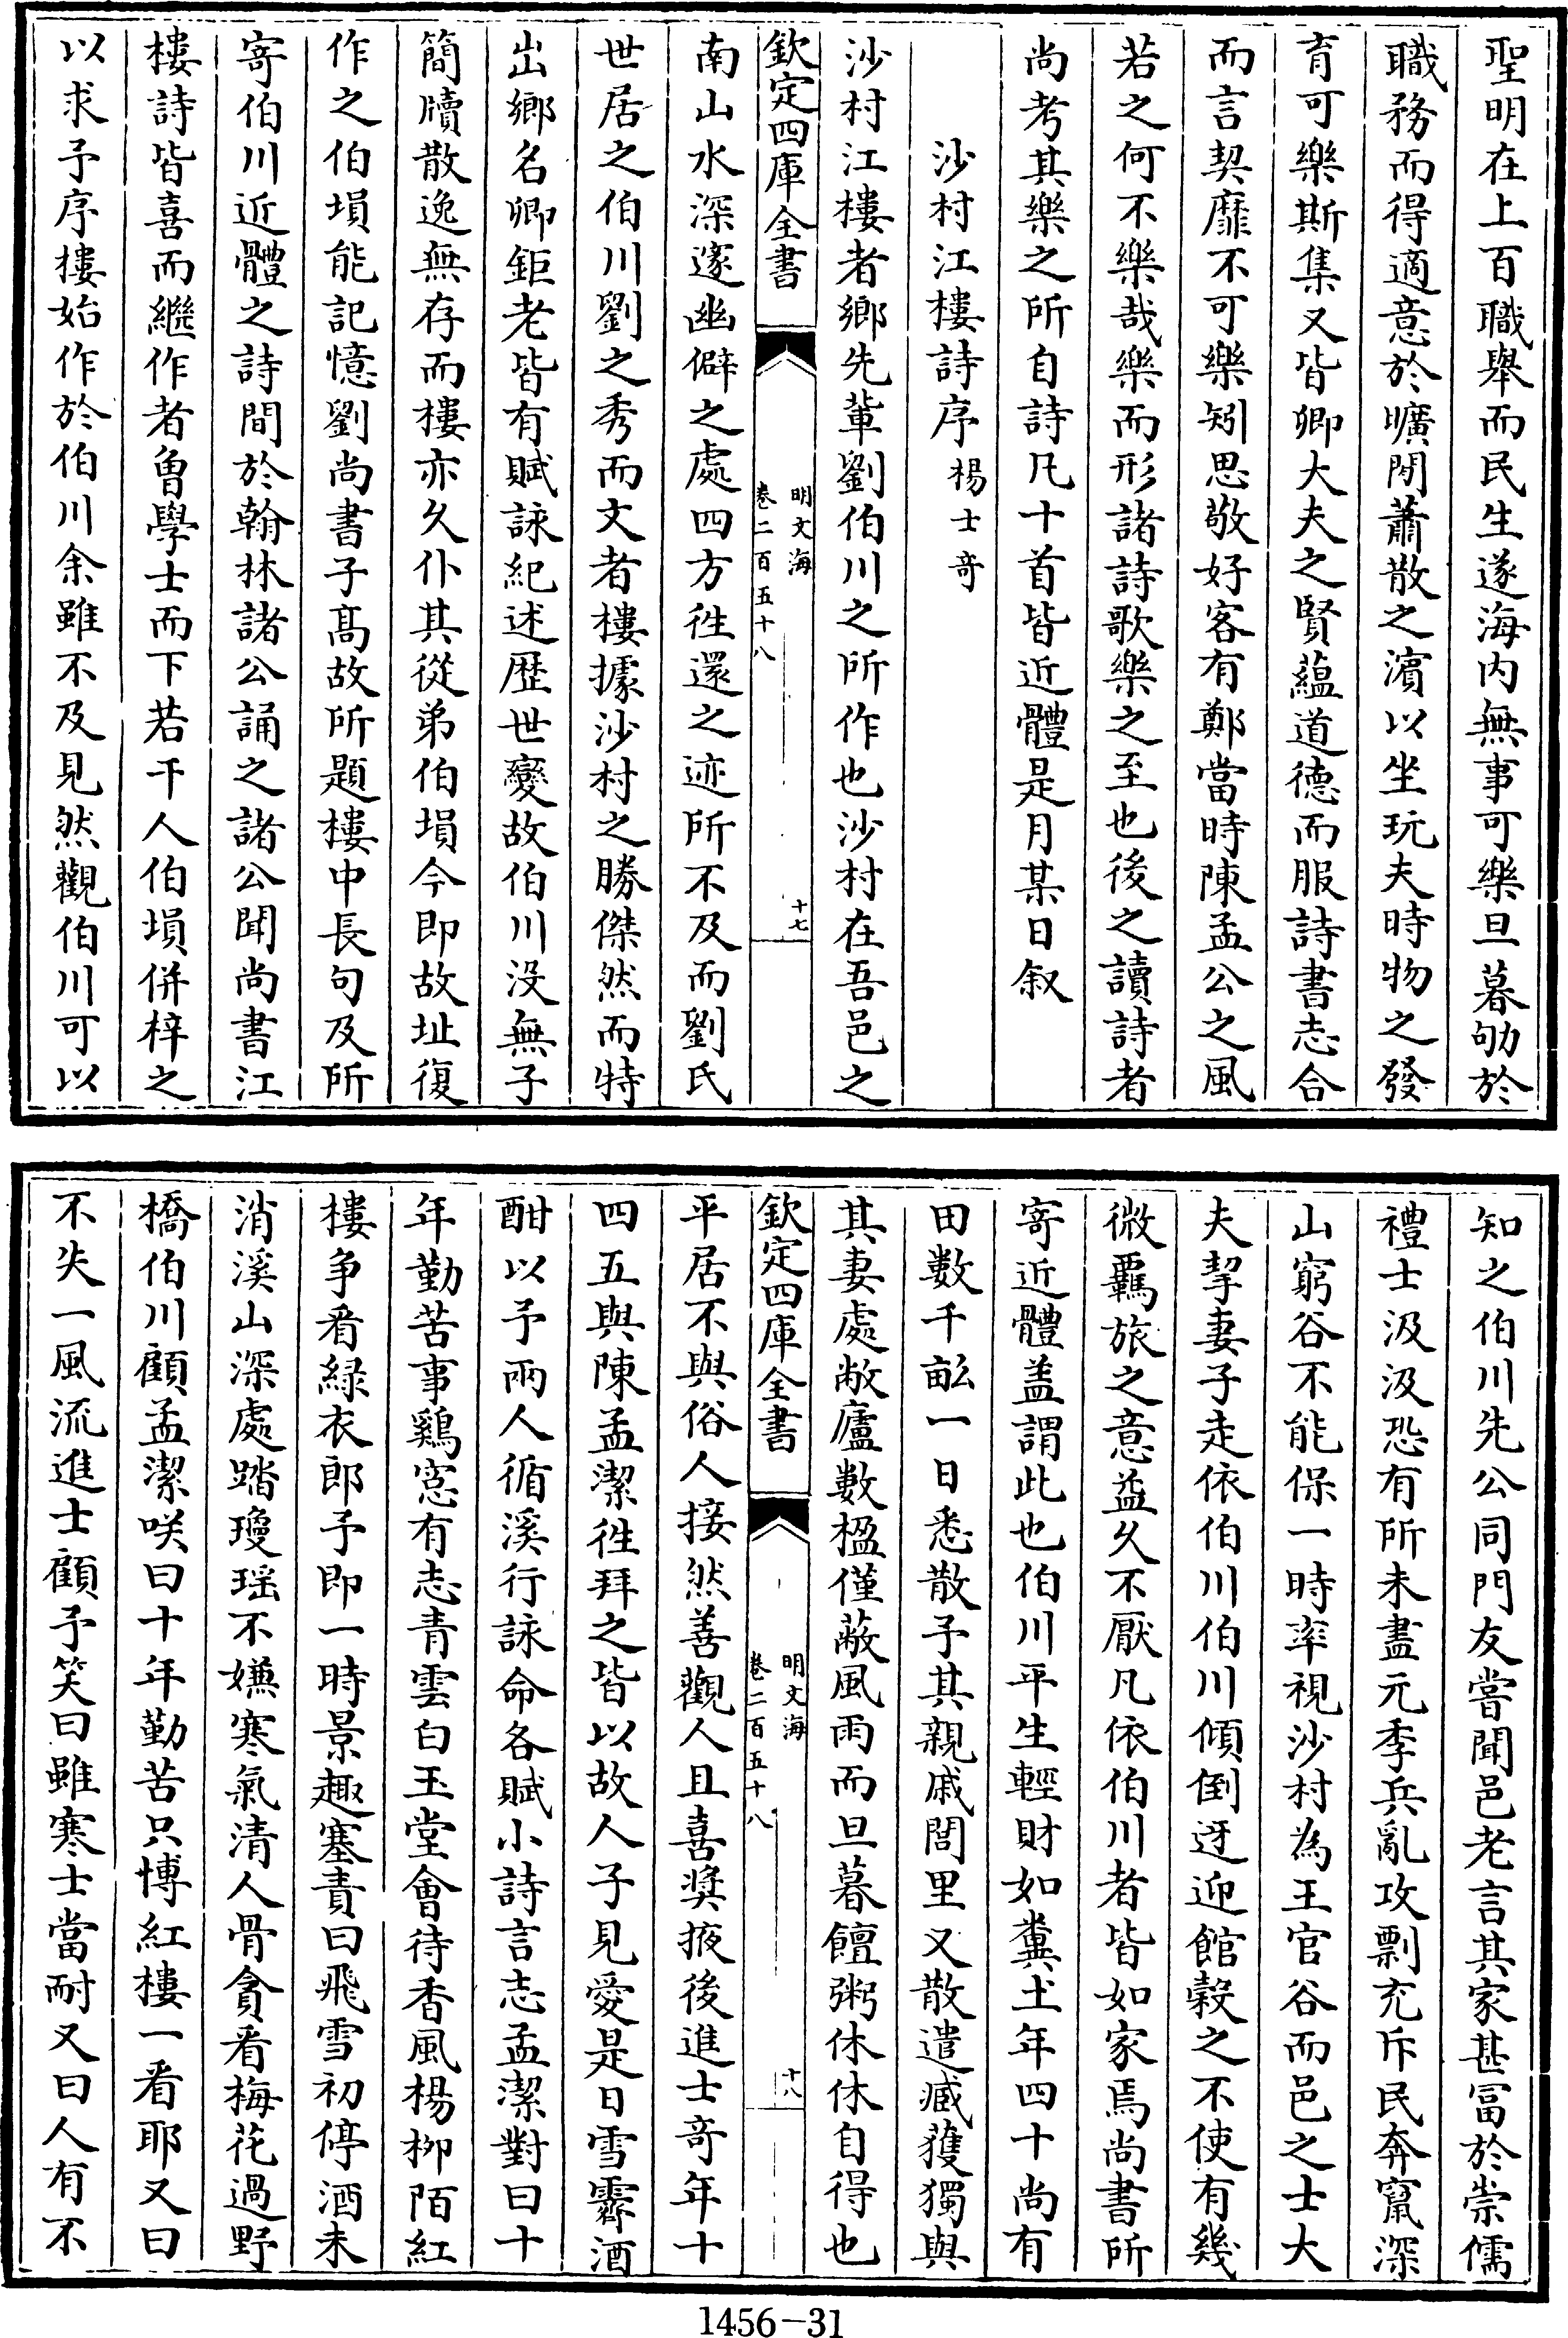 聖明在上百職舉而民生遂海内無事可樂旦暮劬於
職務而得適意於曠閒蕭散之濵以坐玩夫時物之發
育可樂斯集又皆卿大夫之賢藴道德而服詩書志合
而言契靡不可樂矧思敬好客有鄭當時陳孟公之風
若之何不樂哉樂而形諸詩歌樂之至也後之讀詩者
尚考其樂之所自詩凡十首皆近體是月某日叙
沙村江樓詩序 楊士竒
沙村江樓者鄉先輩劉伯川之所作也沙村在吾邑之
欽定四庫全書
明文海
卷二百五十八
十七
南山水深邃幽僻之處四方徃還之迹所不及而劉氏
世居之伯川劉之秀而文者樓據沙村之勝傑然而特
出鄉名卿鉅老皆有賦詠紀述歴世變故伯川没無子
簡牘散逸無存而樓亦久仆其從弟伯塤今即故址復
作之伯塤能記憶劉尚書子髙故所題樓中長句及所
寄伯川近體之詩間於翰林諸公誦之諸公聞尚書江
樓詩皆喜而繼作者魯學士而下若干人伯塤併梓之
以求予序樓始作於伯川余雖不及見然觀伯川可以
知之伯川先公同門友嘗聞邑老言其家甚冨於崇儒
禮士汲汲恐有所未盡元季兵亂攻剽充斥民奔竄深
山窮谷不能保一時率視沙村為王官谷而邑之士大
夫挈妻子走依伯川伯川傾倒迓迎館穀之不使有幾
微羈旅之意益久不厭凡依伯川者皆如家焉尚書所
寄近體盖謂此也伯川平生輕財如糞土年四十尚有
田數千畝一日悉散予其親戚閭里又散遣臧獲獨與
其妻處敝廬數楹僅蔽風雨而旦暮饘粥休休自得也
欽定四庫全書
明文海
卷二百五十八
十八
平居不與俗人接然善觀人且喜奨掖後進士竒年十
四五與陳孟潔徃拜之皆以故人子見愛是日雪霽酒
酣以予兩人循溪行詠命各賦小詩言志孟潔對曰十
年勤苦事鷄窓有志青雲白玉堂會待香風楊柳陌紅
樓争看緑衣郎予即一時景趣塞責曰飛雪初停酒未
消溪山深處踏瓊瑶不嫌寒氣清人骨貪看梅花過野
橋伯川顧孟潔咲曰十年勤苦只博紅樓一看耶又曰
不失一風流進士顧予笑曰雖寒士當耐又曰人有不
1456-31